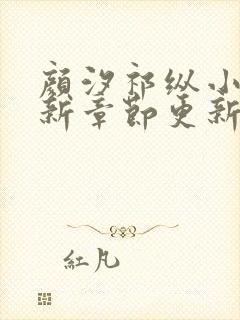 顾汐祁纵小
新章节更新
紅凡